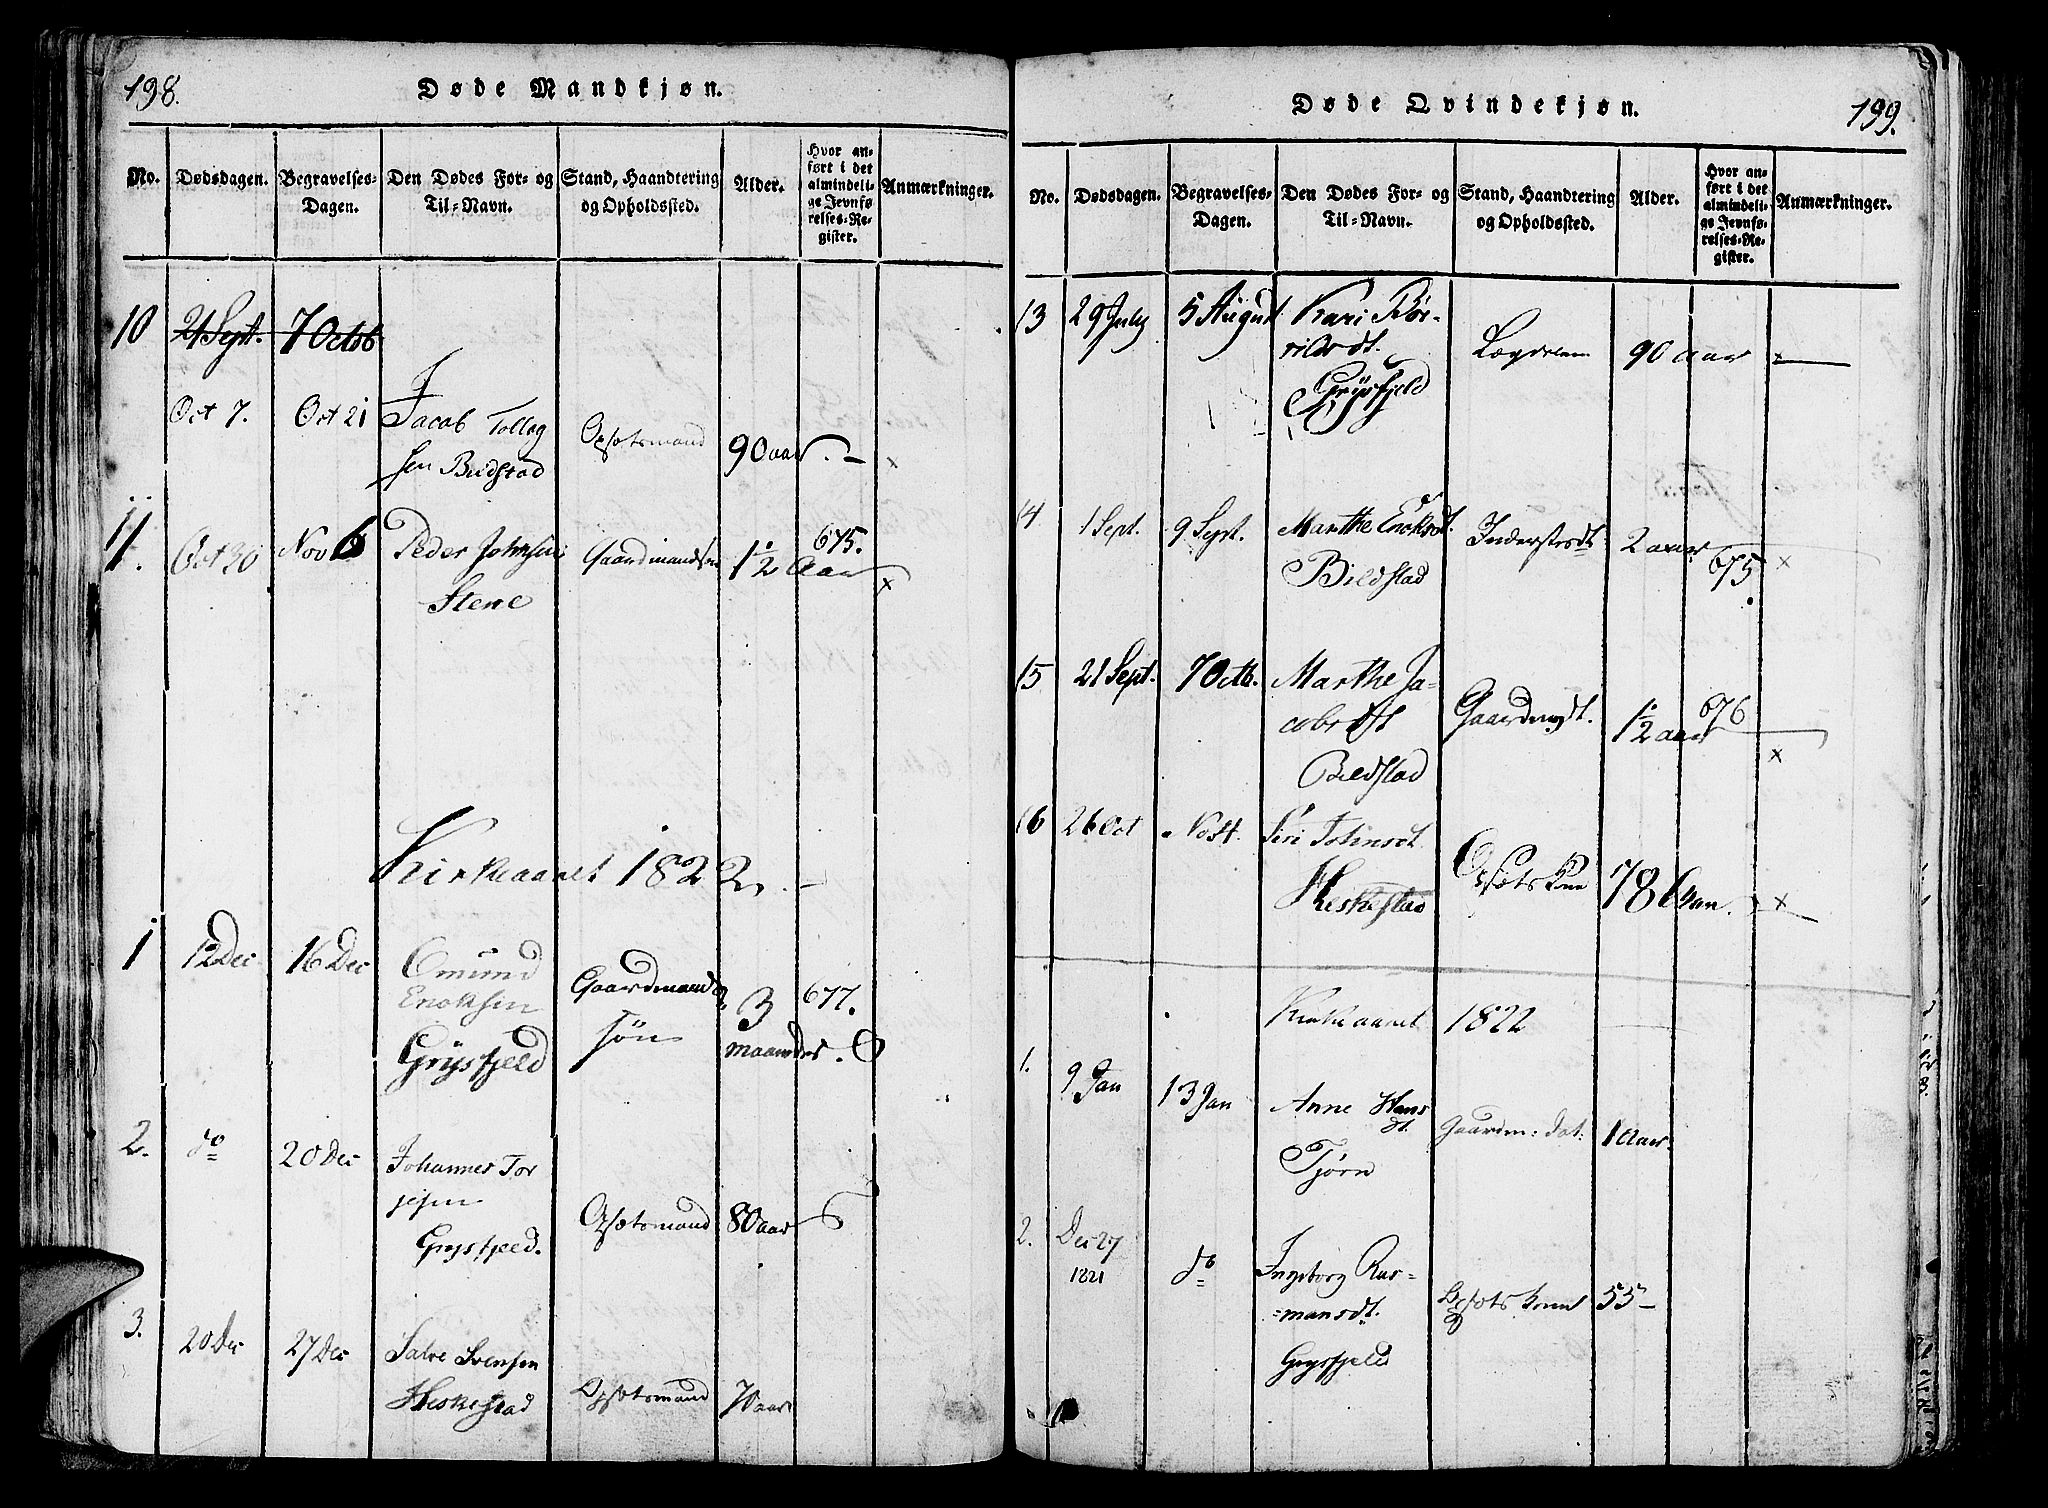 198.
Døde Mandkjøn.
No. Dødsdagen. Begravelses-Dagen. Den Dødes For- og Til-Navn. Stand, Haandtering og Opholdssted. Alder. Hvor anført i det almindelige Jevnførelses-Register. Anmærkninger.
10 21 Sept. 7 Octb
Oct 7. Oct 21 Jacob Tollag
sen Bildstad Opsætsmand 90 aar. – x
11. Oct 30 Nov 6 Peder Johnsen Gaardmandsøn 1½ Aar 675. x
Stene
Kirkeaaret 1822. –
1 12 Dec 16 Dec Omund
Enoksen Gaardmands 3 677.
Grysfjeld søn maaneder.
2. do 20 Dec Johannes Tor
jesen
Grysfjeld. Opsætsmand 80 aar
3. 20 Dec 27 Dec Salve Svensen
Heskestad Opsætsmand 70 aar
199.
Døde Qvindekjøn.
No. Dødsdagen. Begravelses-Dagen. Den Dødes For- og Til-Navn. Stand, Haandtering og Opholdssted. Alder. Hvor anført i det almindelige Jevnførelses-Register. Anmærkninger.
13 29 July 5 August Kari Bør-
rildsdt. Lægdslem 90 aar
Grysfjeld
14 1 Sept. 9 Sept. Marthe Enoksdt. Inderstesdt 2 aar 675. x
Bildstad
15 21 Sept. 7 Octb. Marthe Ja-
cobsdt Gaardmdt. 1½ aar 676 x
Bildstad
16 26 Oct Siri Johnsdt.
Heskestad Opsæts Kne 78 Aar. x
Kirkeaaret 1822
1. 9 Jan 13 Jan Anne Hans
dt. Gaardm: dat: 1 Aar.
Tjørn
2. Dec 27
1821 do Ingeborg Ras=
=mansdt. Opsæts kone 55 –
Grysfjeld